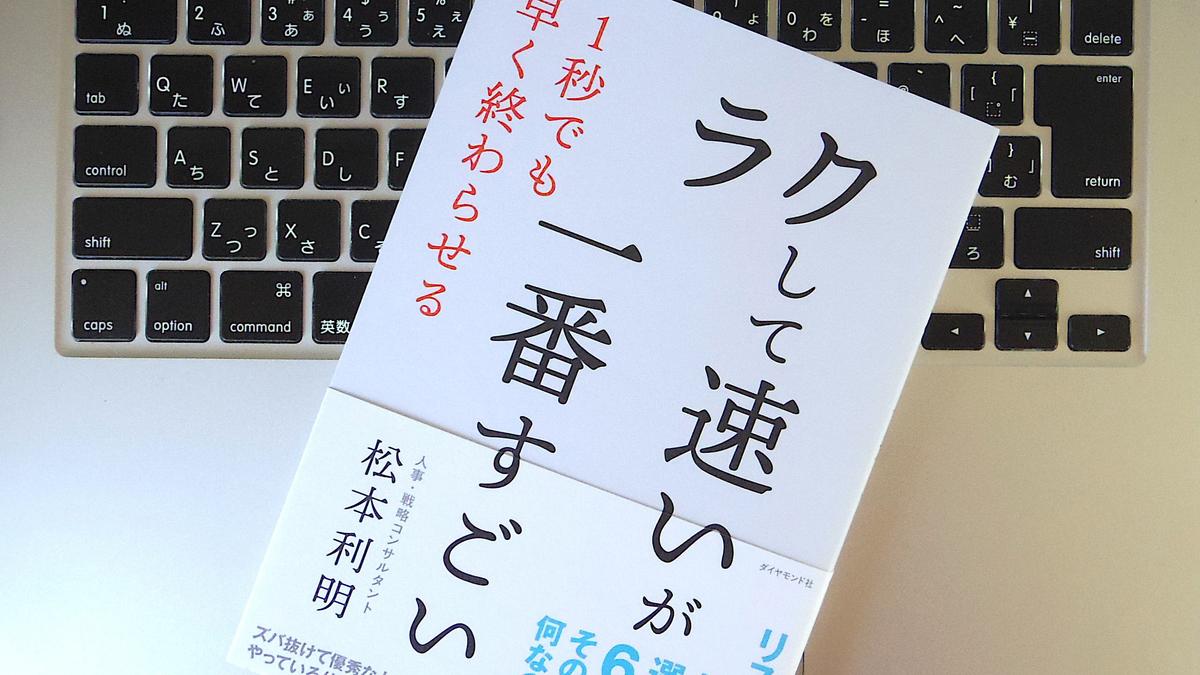 ラクして速いが
一番すごい
1秒でも
早く終わらせる
人事・戦略コンサルタント
松本利明
ダイヤモンド社
6
その
何な
ズバ抜けて優秀な
やっている
1 ぬ
2 ふ
3 あ ぁ
4 う ぅ
5 え ぇ
0 を わ
ー ほ
へ
¥ ー
delete
tab
Q た
W て
E い ぃ
R す
enter
return
control
A ち
S と
D し
F
} 」 む
shift
Z つ っ
X さ
C
ろ
shift
caps
alt option
⌘ command
英数
◀
▲
▼
▶